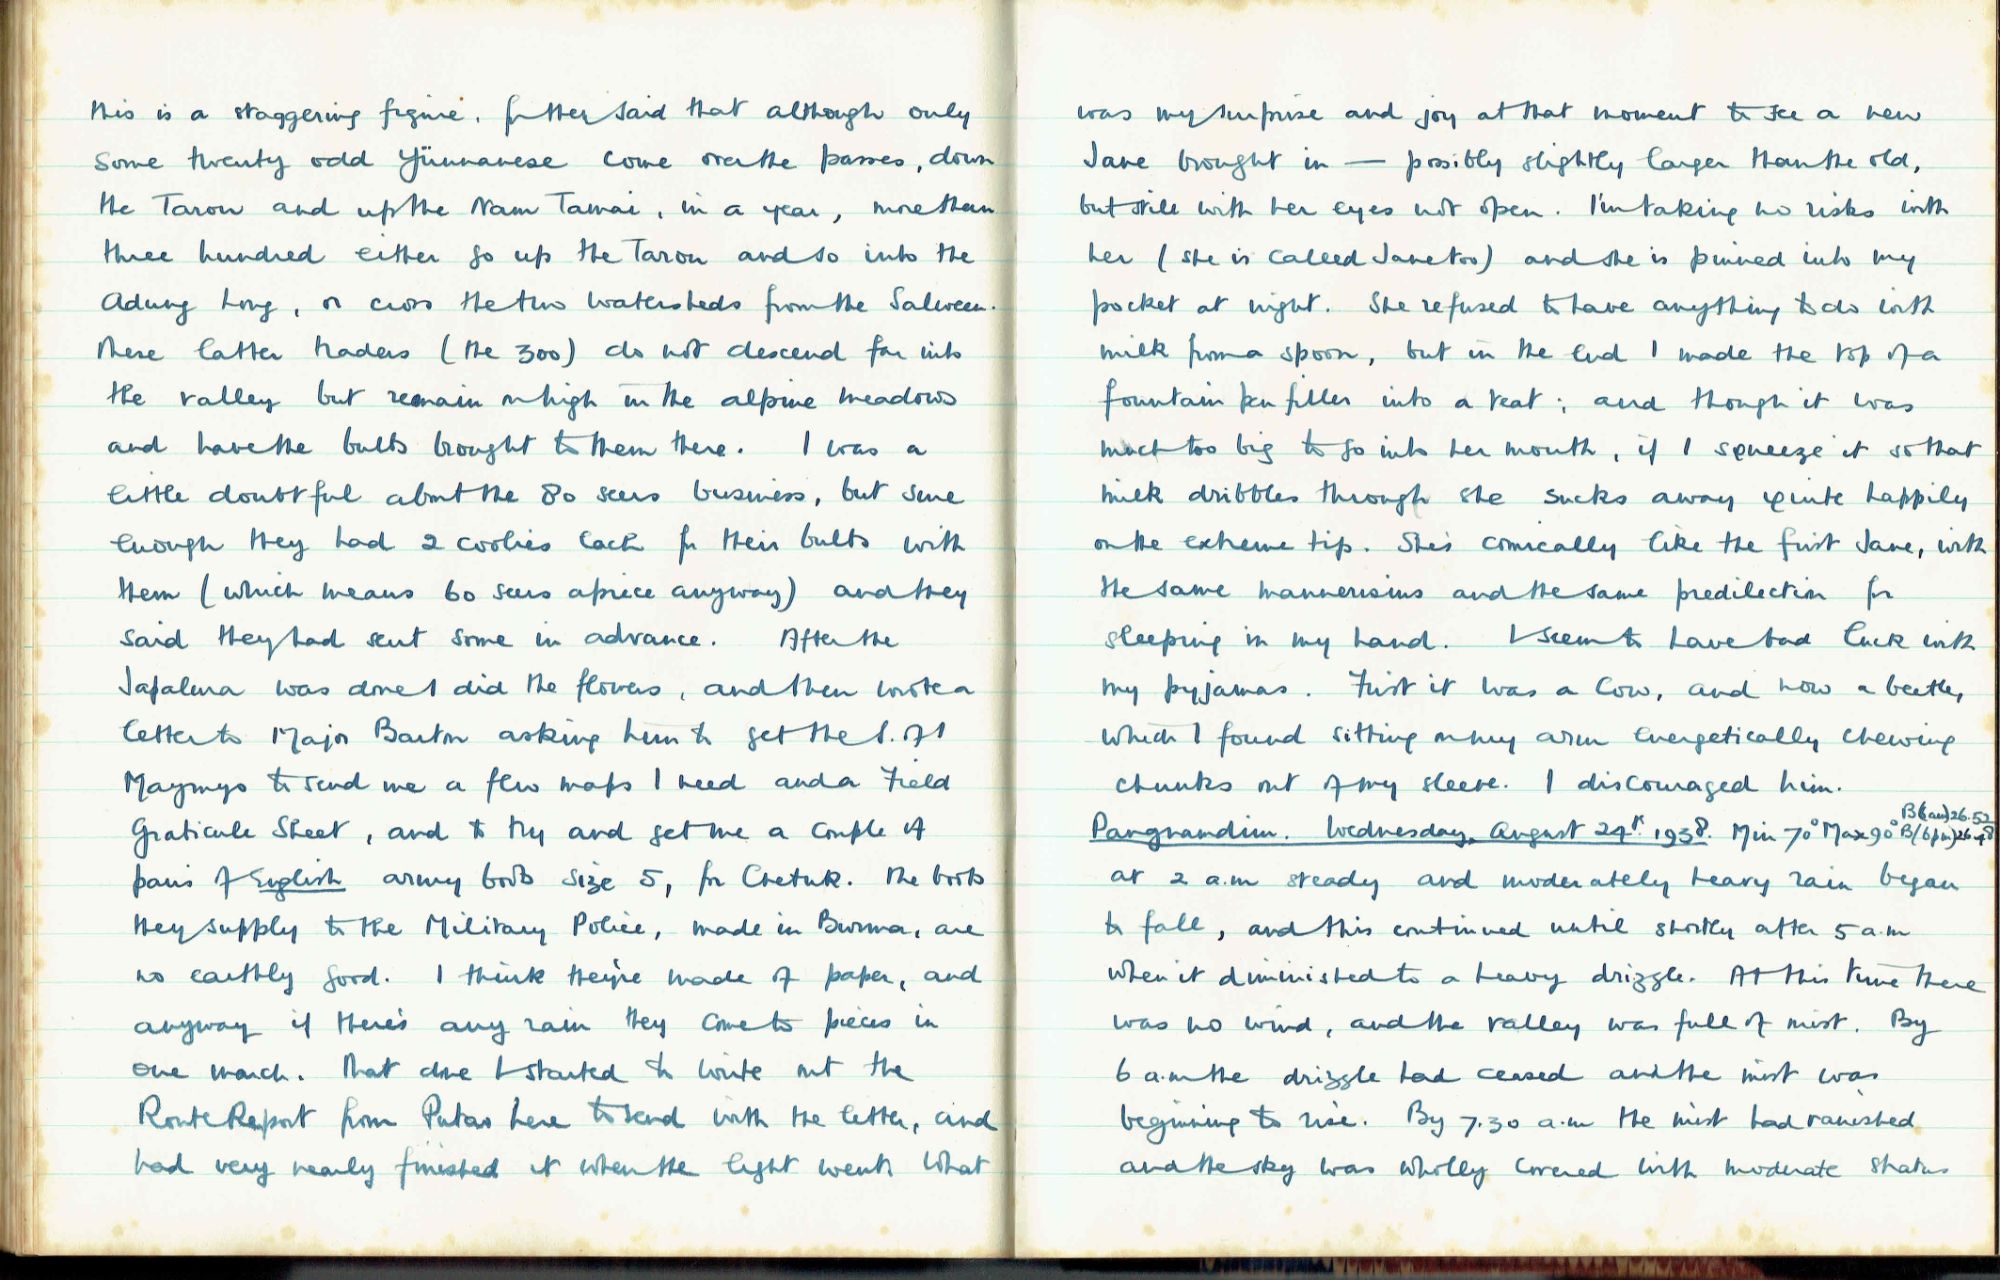 this is a staggering figure. further said that although only
some twenty odd Yünnanese come over the passes, down
the Taron and up the Nam Tamai, in a year, more than
three hundred either go up the Taron and so into the
Adung Long, or cross the two watersheds from the Salween.
These latter traders (the 300) do not descend far into
the valley but remain on high in the alpine meadows
and have the bulbs brought to them there. I was a
little doubtful about the 80 seers business, but sure
enough they had 2 coolies each for their bulbs with
them (which means 60 seers apiece anyway) and they
said they had sent some in advance. After the
Japalura was done I did the flowers, and then wrote a
letter to Major Barton asking him to get the S. of I
Maymyo to send me a few maps I need and a Field
Graticule Sheet, and to try and get me a couple of
pairs of English army boots size 5, for Chetuk. The boots
they supply to the Military Police, made in Burma, are
no earthly good. I think they're made of paper, and
anyway if there's any rain they come to pieces in
one march. That done I started to write out the
Route Report from Putao here to send with the letter, and
had very nearly finished it when the light went. What
was my surprise and joy at that moment to see a new
Jane brought in — possibly slightly larger than the old,
but still with her eyes not open. I'm taking no risks with
her (she is called Janetoo) and she is pinned into my
pocket at night. She refused to have anything to do with
milk from a spoon, but in the end I made the top of a
fountain pen filler into a teat; and though it was
much too big to go into her mouth, if I squeeze it so that
milk dribbles through she sucks away quite happily
on the extreme tip. She's comically like the first Jane, with
the same mannerisms and the same predilection for
sleeping in my hand. I seem to have bad luck with
my pyjamas. First it was a cow, and now a beetle,
which I found sitting on my arm energetically chewing
chunks out of my sleeve. I discouraged him.
Pangnamdim. Wednesday, August 24th 1938. Min 70° Max 90° B(6am)26.52 B(6pm)26.48
at 2 a.m steady and moderately heavy rain began
to fall, and this continued until shortly after 5 a.m
when it diminished to a heavy drizzle. At this time there
was no wind, and the valley was full of mist. By
6 a.m the drizzle had ceased and the mist was
beginning to rise. By 7.30 a.m the mist had vanished
and the sky was wholly covered with moderate stratus